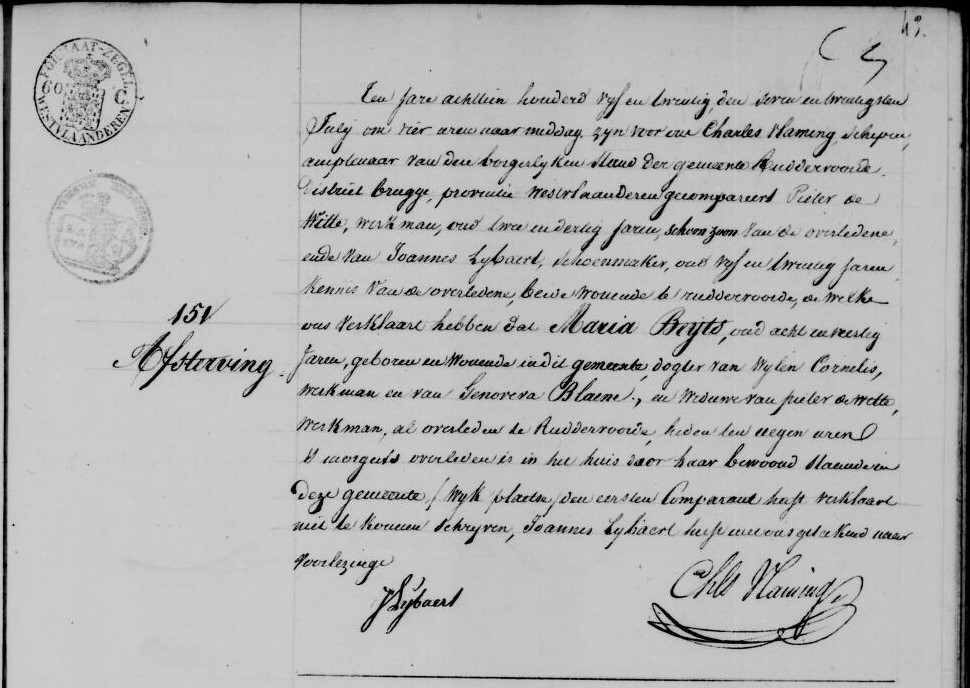 43.
FORMAAT-ZEGEL
60 C.
WESTVLAANDEREN
Ten jare achttien honderd vyf en twintig, den seven en twintigsten
July om vier uren naar middag, zyn voor ons Charles Vlaming, schepen,
amptenaar van den borgerlyken stand der gemeente Ruddervoorde
District brugge, provintie Westvlaanderen gecompareert Pieter de
Witte, werkman, oud twee en dertig jaren, schoon zoon van de overledene,
ende van Joannes Lybaert, schoenmaker, oud vyf en twintig jaren
kennis van de overledene, beide wonende te ruddervoorde, de welke
ons verklaart hebben dat Maria Beyts, oud acht en veertig
Jaren, geboren en wonende in dit gemeente, dogter van wylen Cornelis,
werkman en van Genoveva Blaene, en weduwe van pieter de Witte,
werkman, al overleden te Ruddervoorde, heden ten negen uren
's morgens overleden is in het huis door haar bewoond staende in
deze gemeente / Wyk plaetse / den eersten Comparant heeft verklaart
niet te konnen schryven, Joannes Lybaert heeft met ons getekend naer
voorlezinge
151
Afsterving
J Lybaert
Chls Vlaming